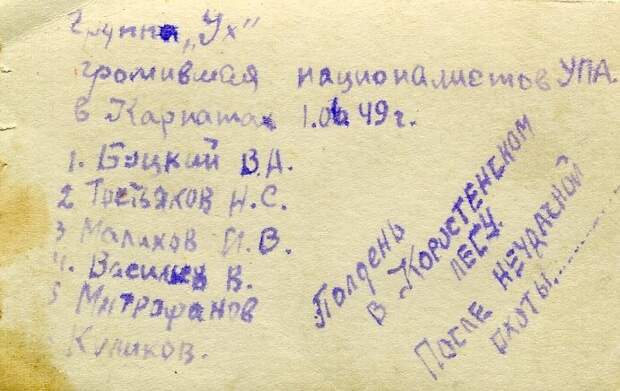 Группа „Ух"
громившая националистов УПА.
в Карпатах 1.06 49 г.
1. Буцкий В.А.
2 Третьяков Н.С.
3 Малахов И.В.
4. Васильев В.
5 Митрофанов
Куликов.
Полдень
в Коростенском
лесу.
После неудачной
охоты......